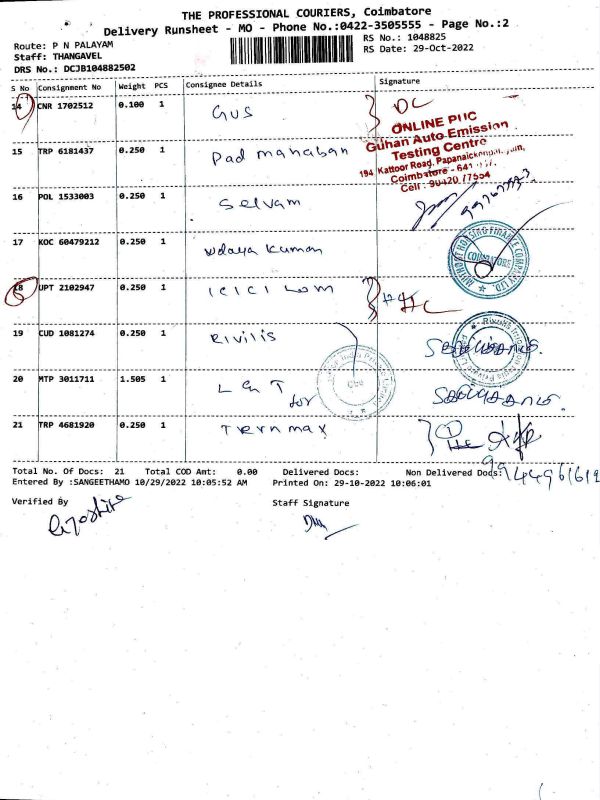 THE PROFESSIONAL COURIERS, Coimbatore
Delivery Runsheet - MO - Phone No.:0422-3505555 - Page No.:2
Route: P N PALAYAM
RS No.: 1048825
Staff: THANGAVEL
RS Date: 29-Oct-2022
DRS No.: DCJB104882502
S No Consignment No Weight PCS Consignee Details Signature
14 CNR 1702512 0.100 1 GUS DC
ONLINE PUC
Guhan Auto Emission
Testing Centre
194 Kattoor Road,
Coimbatore - 641
15 TRP 6181437 0.250 1 Padmanaban
16 POL 1533003 0.250 1 Selvam
17 KOC 60479212 0.250 1 Udaya kumar
HOUSING FINANCE COMPANY LTD.
COIMBATORE
18 UPT 2102947 0.250 1 ICICI Lom
19 CUD 1081274 0.250 1 Rivilis
20 MTP 3011711 1.505 1 L & T
for
Cbe
21 TRP 4681920 0.250 1 Termmax
Total No. Of Docs: 21 Total COD Amt: 0.00 Delivered Docs: Non Delivered Docs:
Entered By :SANGEETHAMO 10/29/2022 10:05:52 AM Printed On: 29-10-2022 10:06:01
Verified By Staff Signature